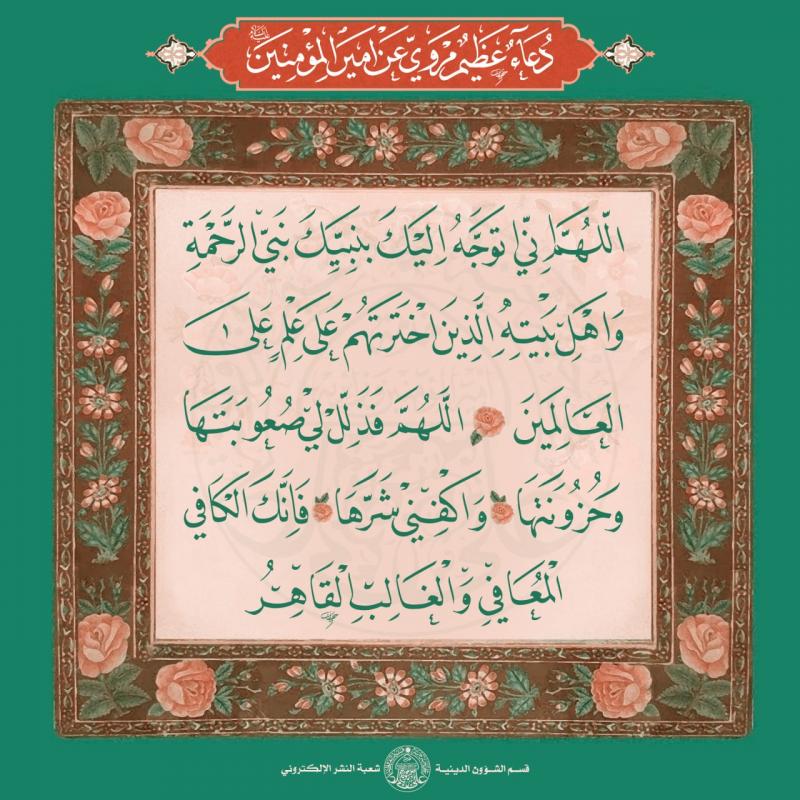 دُعَاءٌ عَظِيمٌ مَرْوِيٌّ عَنْ أَمِيرِ الْمُؤْمِنِينَ
اللَّهُمَّ إِنِّي أَتَوَجَّهُ إِلَيْكَ بِنَبِيِّكَ نَبِيِّ الرَّحْمَةِ
وَأَهْلِ بَيْتِهِ الَّذِينَ اخْتَرْتَهُمْ عَلَى عِلْمٍ عَلَى
الْعَالَمِينَ اللَّهُمَّ فَذَلِّلْ لِي صُعُوبَتَهَا
وَحُزُونَتَهَا وَاكْفِنِي شَرَّهَا فَإِنَّكَ الْكَافِي
الْمُعَافِي وَالْغَالِبُ الْقَاهِرُ
قسم الشؤون الدينية شعبة النشر الإلكتروني